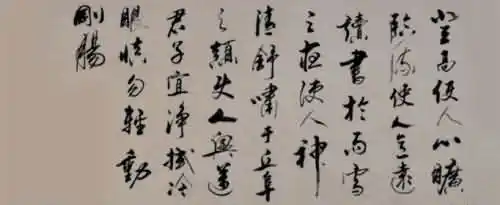 登高使人心曠
臨流使人意遠
讀書於雨雪
之夜使人神
清舒嘯于丘阜
之顛使人興邁
君子宜淨拭冷
眼慎勿輕動
剛腸